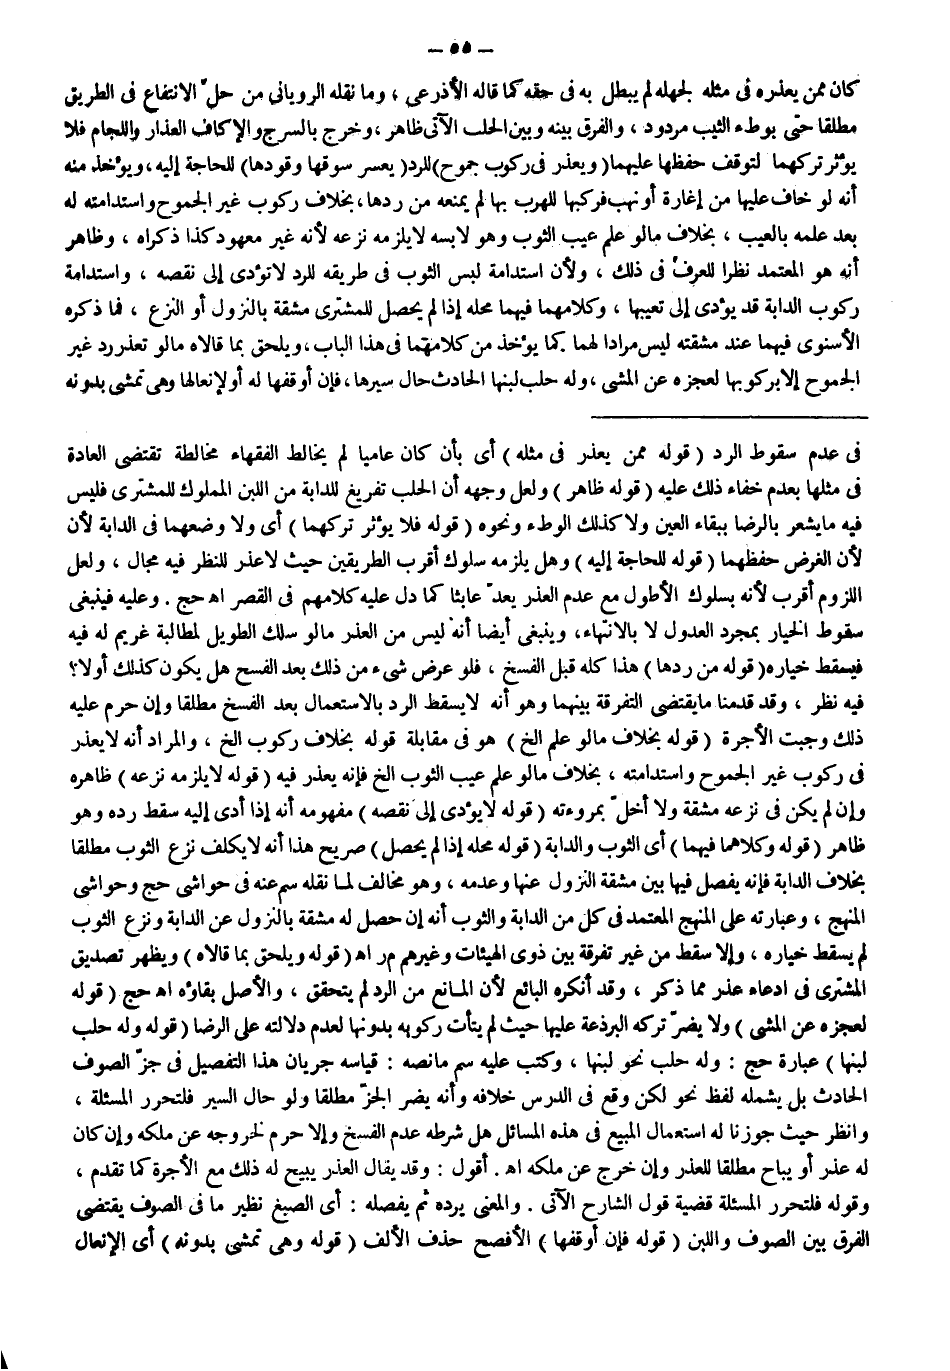 — ٥٥ —
كان ممن يعذره فى مثله لجهله لم يبطل به فى حقه كما قاله الأذرعى ، وما نقله الرويانى من حلّ الانتفاع فى الطريق
مطلقا حتى بوطء الثيب مردود ، والفرق بينه وبين الحلب الآتى ظاهر ، وخرج بالسرج والإكاف العذار واللجام فلا
يؤثر تركهما لتوقف حفظها عليهما ( ويعذر فى ركوب جموح ) للرد ( يعسر سوقها وقودها ) للحاجة إليه ، ويؤخذ منه
أنه لو خاف عليها من إغارة أو نهب فركبها للهرب بها لم يمنعه من ردها ، بخلاف ركوب غير الجموح واستدامته له
بعد علمه بالعيب ، بخلاف مالو علم عيب الثوب وهو لابسه لايلزمه نزعه لأنه غير معهود كذا ذكراه ، وظاهر
أنه هو المعتمد نظرا للعرف فى ذلك ، ولأن استدامة لبس الثوب فى طريقه للرد لاتؤدى إلى نقصه ، واستدامة
ركوب الدابة قد يؤدى إلى تعيبها ، وكلامهما فيهما محله إذا لم يحصل للمشترى مشقة بالنزول أو النزع ، فما ذكره
الأسنوى فيهما عند مشقته ليس مرادا لهما كما يؤخذ من كلامهما فى هذا الباب ، ويلحق بما قالاه مالو تعذر رد غير
الجموح إلا بركوبها لعجزه عن المشى ، وله حلب لبنها الحادث حال سيرها ، فإن أوقفها له أو لإنعالها وهى تمشى بدونه
فى عدم سقوط الرد ( قوله ممن يعذر فى مثله ) أى بأن كان عاميا لم يخالط الفقهاء مخالطة تقتضى العادة
فى مثلها بعدم خفاء ذلك عليه ( قوله ظاهر ) ولعل وجهه أن الحلب تفريغ للدابة من اللبن المملوك للمشترى فليس
فيه مايشعر بالرضا ببقاء العين ولا كذلك الوطء ونحوه ( قوله فلا يؤثر تركهما ) أى ولا وضعهما فى الدابة لأن
لأن الغرض حفظهما ( قوله للحاجة إليه ) وهل يلزمه سلوك أقرب الطريقين حيث لاعذر للنظر فيه مجال ، ولعل
اللزوم أقرب لأنه بسلوك الأطول مع عدم العذر يعدّ عابثا كما دل عليه كلامهم فى القصر اه حج . وعليه فينبغى
سقوط الخيار بمجرد العدول لا بالانتهاء ، وينبغى أيضا أنه ليس من العذر مالو سلك الطويل لمطالبة غريم له فيه
فيسقط خياره ( قوله من ردها ) هذا كله قبل الفسخ ، فلو عرض شىء من ذلك بعد الفسخ هل يكون كذلك أولا ؟
فيه نظر ، وقد قدمنا مايقتضى التفرقة بينهما وهو أنه لايسقط الرد بالاستعمال بعد الفسخ مطلقا وإن حرم عليه
ذلك وجبت الأجرة ( قوله بخلاف مالو علم الخ ) هو فى مقابلة قوله بخلاف ركوب الخ ، والمراد أنه لايعذر
فى ركوب غير الجموح واستدامته ، بخلاف مالو علم عيب الثوب الخ فإنه يعذر فيه ( قوله لايلزمه نزعه ) ظاهره
وإن لم يكن فى نزعه مشقة ولا أخلّ بمروءته ( قوله لايؤدى إلى نقصه ) مفهومه أنه إذا أدى إليه سقط رده وهو
ظاهر ( قوله وكلاهما فيهما ) أى الثوب والدابة ( قوله محله إذا لم يحصل ) صريح هذا أنه لايكلف نزع الثوب مطلقا
بخلاف الدابة فإنه يفصل فيها بين مشقة النزول عنها وعدمه ، وهو مخالف لما نقله سم عنه فى حواشى حج وحواشى
المنهج ، وعبارته على المنهج المعتمد فى كل من الدابة والثوب أنه إن حصل له مشقة بالنزول عن الدابة ونزع الثوب
لم يسقط خياره ، وإلا سقط من غير تفرقة بين ذوى الهيئات وغيرهم مر اه ( قوله ويلحق بما قالاه ) ويظهر تصديق
المشترى فى ادعاء عذر مما ذكر ، وقد أنكره البائع لأن المانع من الرد لم يتحقق ، والأصل بقاؤه اه حج ( قوله
لعجزه عن المشى ) ولا يضرّ تركه البرذعة عليها حيث لم يتأت ركوبه بدونها لعدم دلالته على الرضا ( قوله وله حلب
لبنها ) عبارة حج : وله حلب نحو لبنها ، وكتب عليه سم مانصه : قياسه جريان هذا التفصيل فى جزّ الصوف
الحادث بل يشمله لفظ نحو لكن وقع فى الدرس خلافه وأنه يضر الجزّ مطلقا ولو حال السير فلتحرر المسئلة ،
وانظر حيث جوزنا له استعمال المبيع فى هذه المسائل هل شرطه عدم الفسخ وإلا حرم لخروجه عن ملكه وإن كان
له عذر أو يباح مطلقا للعذر وإن خرج عن ملكه اه . أقول : وقد يقال العذر يبيح له ذلك مع الأجرة كما تقدم ،
وقوله فلتحرر المسئلة قضية قول الشارح الآتى . والمعنى يرده ثم يفصله : أى الصبغ نظير ما فى الصوف يقتضى
الفرق بين الصوف واللبن ( قوله فإن أوقفها ) الأفصح حذف الألف ( قوله وهى تمشى بدونه ) أى الإنعال